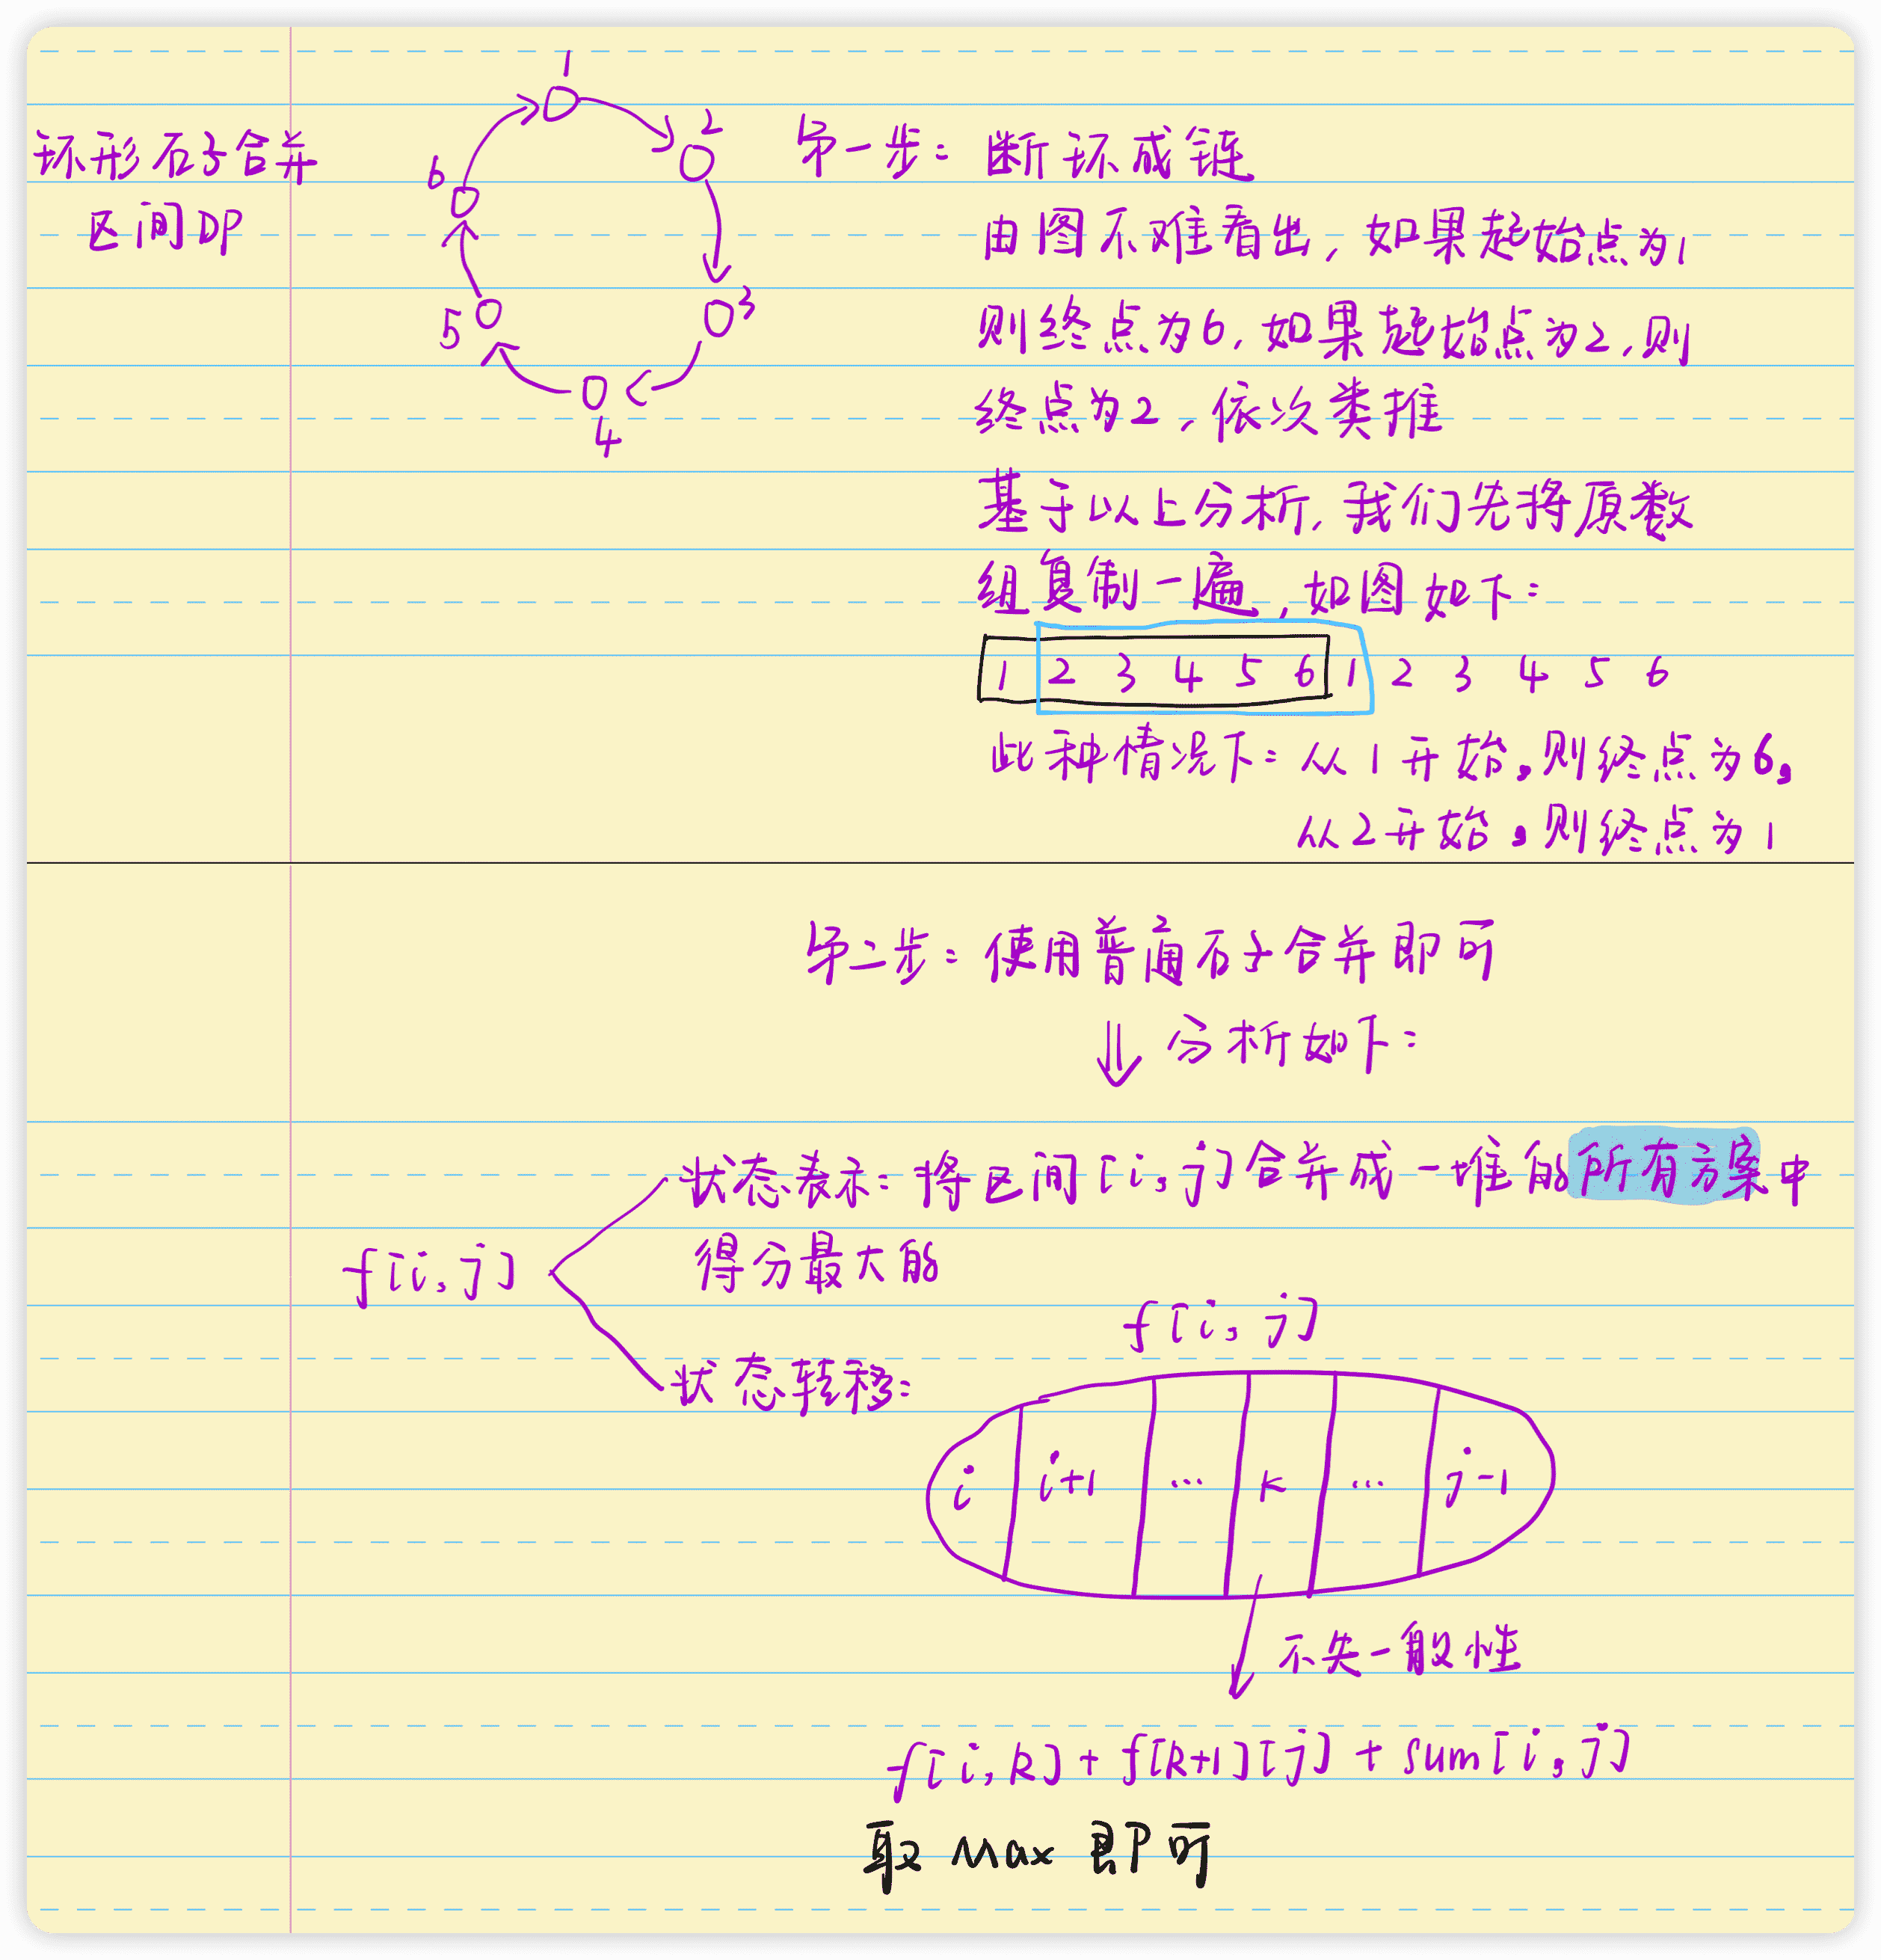 环形石子合并
区间DP
1
2
3
4
5
6
第一步：断环成链
由图不难看出，如果起始点为1
则终点为6，如果起始点为2，则
终点为2，依次类推
基于以上分析，我们先将原数
组复制一遍，如图如下：
1 2 3 4 5 6 1 2 3 4 5 6
此种情况下：从1开始，则终点为6，
从2开始，则终点为1
第二步：使用普通石子合并即可
⇓ 分析如下：
状态表示：将区间[i,j]合并成一堆的所有方案中
得分最大的
f[i,j]
状态转移：
f[i,j]
i i+1 ... k ... j-1
不失一般性
f[i,k]+f[k+1][j]+sum[i,j]
取Max即可